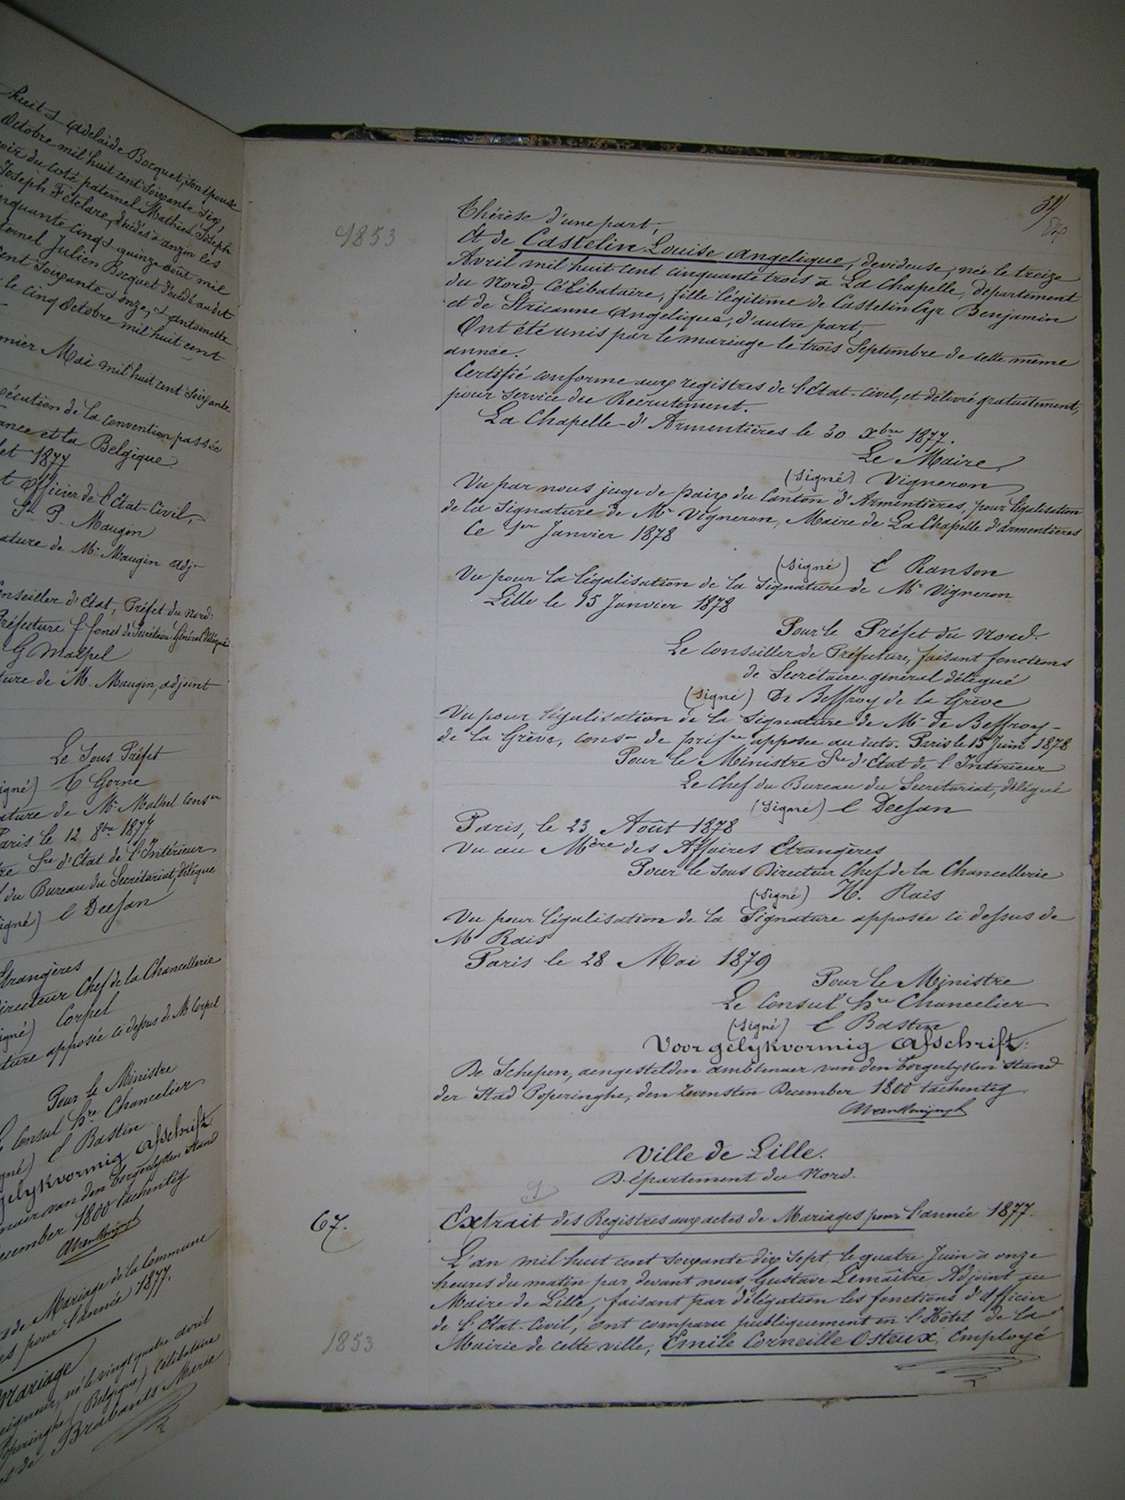 huit & Adelaïde Bocquet, son épouse
Octobre mil huit cent soixante dix,
du coté paternel Mathieu Joseph
Joseph Féticlare, décédés à anzin les
cinquante cinq & quinze août mil
Julien Bocquet
cent soixante & onze, & antoinette
le cinq Octobre mil huit cent
Mai mil huit cent soixante
de la convention passée
et la Belgique
1877
Officier de l'Etat-Civil,
P. Maugin
de Mr Maugin adj-
Conseiller d'Etat, Préfet du Nord
Préfecture f. fons de Secrétaire Général délégué
G Malpel
de M. Maugin, adjoint
Le Sous Préfet
E Gorne
de Mr Malpel Conser
Paris le 12 8bre 1877
Sre d'Etat de l'Intérieur
du Bureau du Secrétariat, délégué
C Deesan
Etrangères
Directeur Chef de la Chancellerie
Corpel
apposée ci dessus de Mr Corpel
Pour le Ministre
Le Consul hre Chancelier
C Bastin
gelykvormig afschrift
van den borgerlyken stand
december 1800 tachentig
de Mariage de la Commune
pour l'année 1877.
Mariage
né le vingt quatre avril
Poperinghe (Belgique) Célibataire
de Brabands Marie
39/
84
1853
Thérèse d'une part,
Et de Castelin Louise Angelique, devideuse, née le treize
Avril mil huit cent cinquante trois à La Chapelle, departement
du Nord, Célibataire, fille légitime de Castelin Cyr Benjamin
et de Stricanne Angelique, d'autre part,
Ont été unis par le mariage le trois Septembre de cette même
année.
Certifié conforme aux registres de l'Etat-Civil, et délivré gratuitement,
pour service du Recrutement.
La Chapelle-d'Armentières le 30 xbre 1877.
Le Maire,
(signé) Vigneron
Vu par nous juge de paix du Canton d'Armentières, pour légalisation
de la Signature de Mr Vigneron, Maire de La Chapelle d'armentières
Ce 1er Janvier 1878
(signé) C Ranson
Vu pour la légalisation de la Signature de Mr Vigneron
Lille le 15 Janvier 1878
Pour le Préfet du Nord-
Le Conseiller de Préfecture, faisant fonctions
de Secrétaire général délégué
(signé) De Beffroy de la Grève
Vu pour légalisation de la Signature de Mr de Beffroy-
de la Grève, consr de préfre apposée au recto. Paris le 15 Juin 1878
Pour le Ministre Sre d'Etat de l'Intérieur
Le Chef du Bureau du Secrétariat, délégué
(Signé) C Deesan
Paris, le 23 Août 1878
Vu au Mtère des Affaires Etrangères
Pour le Sous Directeur Chef de la Chancellerie
(signé) H. Rais
Vu pour légalisation de la Signature apposée ci dessus de
Mr Rais
Paris le 28 Mai 1879
Pour le Ministre
Le Consul hre Chancelier
(signé) C Bastin
Voor gelykvormig afschrift:
De Schepen, aengestelden ambtenaer van den borgerlyken stand
der Stad Poperinghe, den zevensten December 1800 tachentig
Ville de Lille.
Département du Nord.
67.
Extrait des Registres aux actes de Mariages pour l'année 1877.
L'an mil huit cent soixante dix sept, le quatre Juin à onze
heures du matin par devant nous Gustave Lemaître Adjoint au
Maire de Lille, faisant par délégation les fonctions d'Officier
de l'Etat-Civil, ont comparu publiquement en l'Hôtel de la
1853
Mairie de cette ville, Emile Corneille Osteux, employé